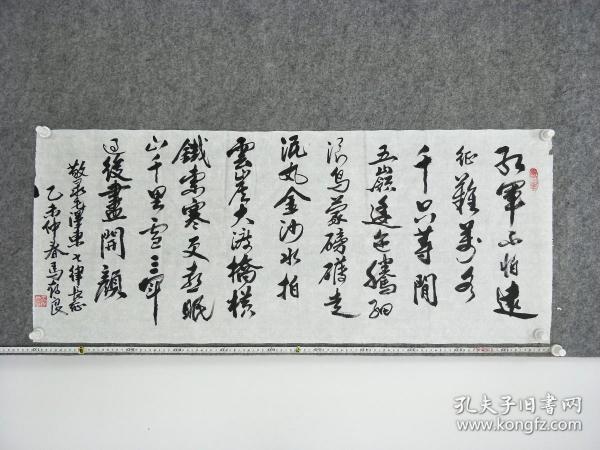 紅軍不怕遠
征難萬水
千只等閒
五嶺逶迤騰細
浪烏蒙磅礴走
泥丸金沙水拍
雲崖大渡橋橫
鐵索寒更喜岷
山千里雪三軍
過後盡開顏
敬录毛澤東七律长征
乙未仲春馬
孔夫子旧书网
www.kongfz.com